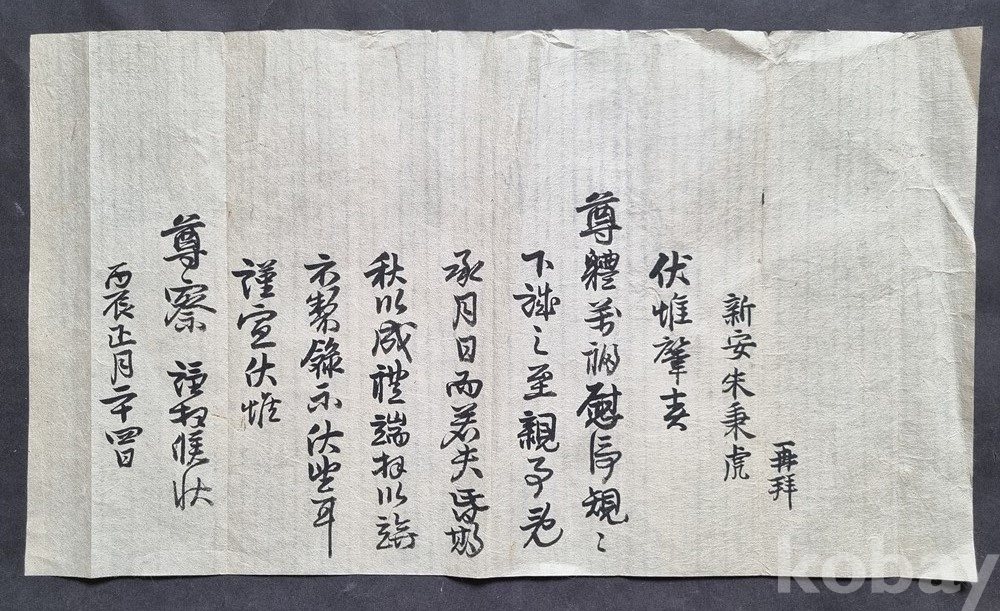 新安朱秉虎
再拜
伏惟肇春
尊體萬福慰 規〻
下誠之至親事既
承月日而若夫昏期
秋以成禮端 以
示 錄示伏望耳
謹宣伏惟
尊察 謹拜候狀
丙辰正月二十四日
kobay